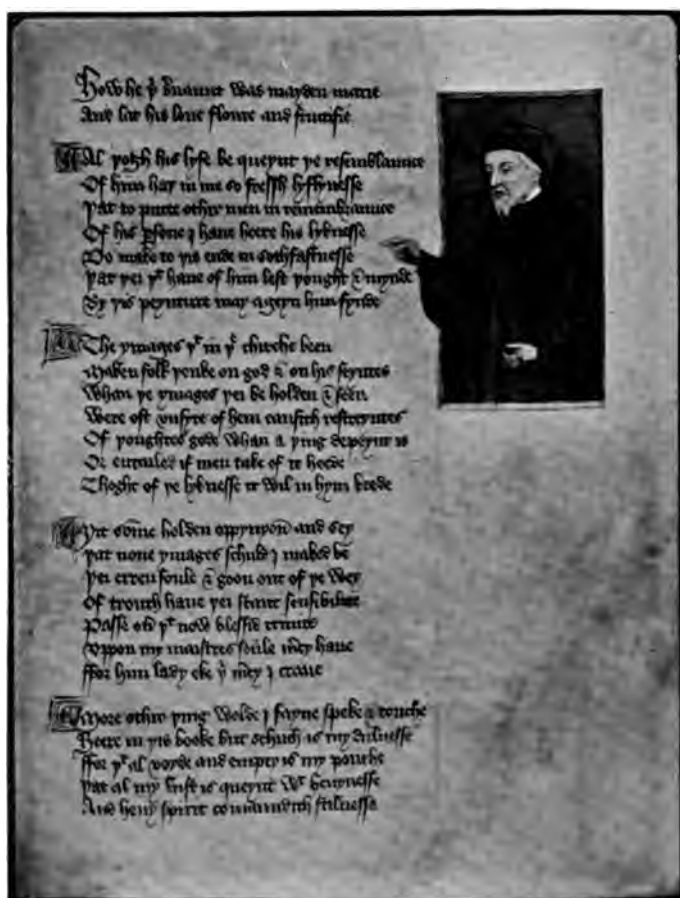 How he þi seruaunt was mayden marie
And lat his loue floure and fructifie
Al yogh his lyfe be queynt ye resemblaunce
Of him haþ in me so fressh lyflynesse
Þat to putte othir men in remembraunce
Of his persone I haue heere his lyknesse
Do make to yis ende in sothfastnesse
Þat yei yt haue of him left yought & mynde
By yis peynture may ageyn him fynde
The ymages yt in ye chirche been
Maken folk yenke on god & on his seyntes
Whan ye ymages yei be holden & seen
Were oft vnsyte of hem causith restreyntes
Of youghtes gode whan a ying depeynt is
Or entailed if men take of it heede
Thoght of ye lyknesse it wil in hym brede
Yit some holden oppynyon and sey
Þat none ymages schuld I maked be
Yei erren foule & goon out of ye wey
Of trouth haue yei scant sensibilite
Passe ouer yt now blessid trinite
Vppon my maistres soule mercy haue
Ffor him lady eke yi mercy I craue
More othir ying wolde I fayne speke & touche
Heere in yis booke but schuch is my dulnesse
Ffor yt al voyde and empty is my pouche
Þat al my lust is queynt wt heuynesse
And heuy spirit comaundith stilnesse